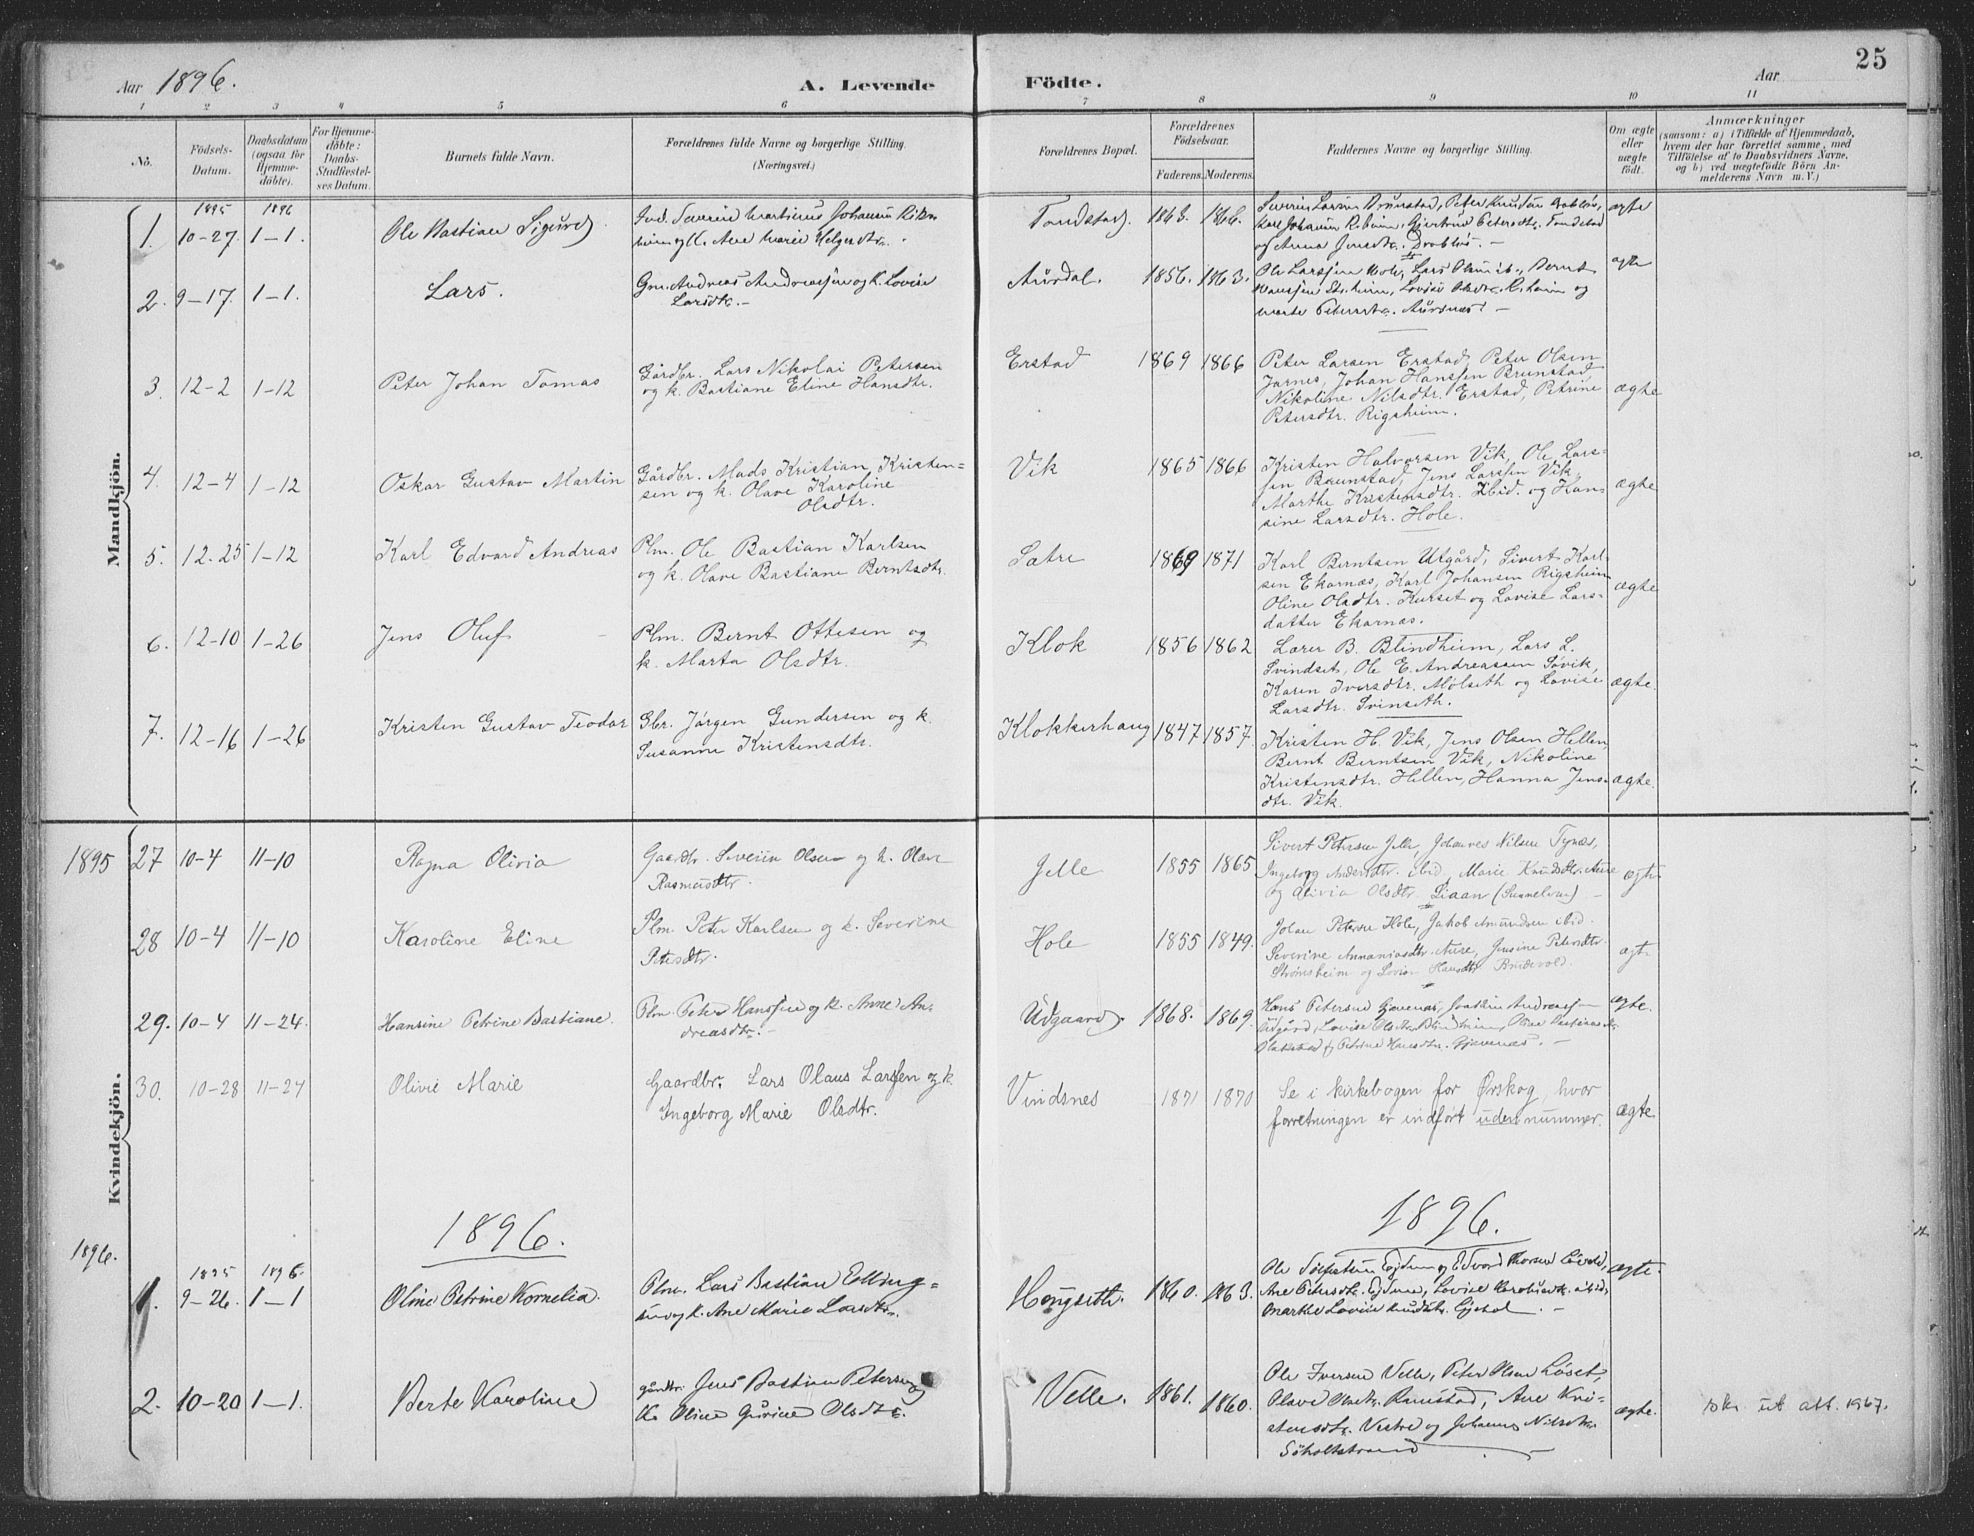 Aar 1896. A. Levende Födte. Aar 25
1 2 3 4 5 6 7 8 9 10 11
No.
Födsels-
Datum.
Daabsdatum
(ogsaa for
Hjemme-
döbte).
For Hjemme-
döbte:
Daabs-
Stadfæstel-
ses Datum.
Barnets fulde Navn.
Forældrenes fulde Navne og borgerlige Stilling.
(Næringsvei.)
Forældrenes Bopæl.
Forældrenes
Födselsaar.
Faderens. Moderens.
Faddernes Navne og borgerlige Stilling.
Om ægte
eller
uægte
födt.
Anmærkninger
(saasom: a) i Tilfælde af Hjemmedaab,
hvem der har forrettet samme, med
Tilföielse af to Daabsvidners Navne,
og b) ved uægtefödte Börn An-
melderens Navn m. V.)
Mandkjön.
1895 1896
1. 10-27. 1-1. Ole Bastian Sigurd
Severin Martinus Johansen
og k. Ane Marie Helgesdtr.
Tondstad. 1863. 1866.
Severin Larsen Brunstad, Peter Knudsen
Karl Johansen Gjertrud Petersdtr. Tondstad
og Anna Jensdtr. Drabløs. -
ægte
2. 9-17. 1-1. Lars.
Gm. Andreas Andreassen og k. Lovise
Larsdtr. -
Aursdal. 1856. 1863.
Ole Larssen Hole, Lars Bernt
Hanssen Lovise Olsdtr. og
Marte Petersdtr. Aursnes. -
ægte
3. 12-2 1-12 Peter Johan Tomas
Gårdbr. Lars Nikolai Petersen
og k. Bastiane Eline Hansdtr.
Erstad 1869 1866
Peter Larsen Erstad, Peter Olsen
Jarnes, Johan Hanssen Brunstad,
Nikoline Nilsdtr. Erstad, Petrine
Petersdtr. Rigsheim.
ægte
4. 12-4 1-12 Oskar Gustav Martin
Gårdbr. Mads Kristian Kristen=
sen og k. Olave Karoline
Olsdtr.
Vik 1865 1866
Kristen Halvorsen Vik, Ole Lars-
sen Brunstad, Jens Larssen Vik,
Marthe Kristensdtr. Ibid. og Han-
sine Larsdtr. Hole.
ægte
5. 12-25 1-12 Karl Edvard Andreas
Plm. Ole Bastian Karlsen
og k. Olave Bastiane Berntsdtr.
Sætre 1869 1871
Karl Berntsen Utgård, Sivert Karl-
sen Ekornæs, Karl Johansen Rigsheim
Oline Olsdtr. Kurset og Lovise Lars-
datter Ekornæs.
ægte
6. 12-10 1-26 Jens Oluf
Plm. Bernt Ottesen og
k. Marta Olsdtr.
Klok 1856 1862
Lærer B. Blindheim, Lars L.
Svindset, Ole E. Andreassen Søvik,
Karen Iversdtr. Mølseth og Lovise
Larsdtr. Svinseth.
ægte.
7. 12-16 1-26 Kristen Gustav Teodor
Gbr. Jørgen Gundersen og k.
Susanne Kristensdtr.
Klokkerhaug 1847 1857.
Kristen H. Vik, Jens Olsen Hellen,
Bernt Berntsen Vik, Nikoline
Kristensdtr. Hellen, Hanna Jens-
dtr. Vik.
ægte
Kvindekjön.
1895 27 10-4 11-10 Ragna Olivia
Gaardbr. Severin Olsen og k. Olave
Rasmusdtr.
Jelle 1855 1865
Sivert Petersen Jelle, Johannes Nilsen Tynæs,
Ingeborg Andersdtr. ibid, Marie Knudsdtr. Aure
og Olivia Olsdtr. Liaan (Sunnelven) -
ægte
28 10-4 11-10 Karoline Eline
Plm. Peter Karlsen og k. Severine
Petersdtr.
Hole 1855 1849.
Johan Petersen Hole, Jakob Amundsen ibid.
Severine Annaniasdtr. Aure, Jensine Petersdtr.
Strømsheim og Lovise Hansdtr.
ægte
29. 10-4 11-24. Hansine Petrine Bastiane.
Plm. Peter Hanssen og k. Anne An-
dreasdtr. -
Udgaard. 1868. 1869.
Hans Petersen Gjævenæs, Joakim
Udgård, Lovise Olsdtr. Blindheim,
og Petrine Hansdtr. Gjævenæs. -
ægte.
30. 10-28 11-24 Olivie Marie
Gaardbr. Lars Olaus Larssen og k.
Ingeborg Marie Olsdtr.
Vindsnes 1871 1870
Se i kirkebogen for Ørskog, hvor
forretningen er indført uden nummer.
ægte
1896. 1896. 1896.
1895 1896
1. 9-26. 1-1 Oline Petrine Kornelia.
Plm. Lars Bastian Elling=
sen og k. Ane Marie Larsdtr.
Haugseth. 1860. 1863.
Ole og Edvard
Ane Petersdtr. Lovise
Marthe Lovise Knudsdtr. -
ægte.
2. 10-20 1-1. Berte Karoline
gårdbr. Jens Bastian Petersen og
K. Oline Gurine Olsdtr.
Velle. 1861. 1860.
Ole Iversen Velle, Peter Olsen Løset,
Olave Ramstad, Ane Kri-
stensdtr. Vestre og Johannes Nilsen
Søholtstrand -
ægte.
ut att. 1967.